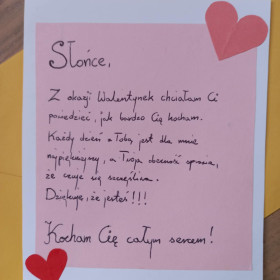 Słońce,
Z okazji Walentynek chciałam Ci
powiedzieć, jak bardzo Cię kocham.
Każdy dzień z Tobą jest dla mnie
najpiękniejszy, a Twoja obecność sprawia,
że czuję się szczęśliwa.
Dziękuję, że jesteś!!!
Kocham Cię całym sercem!